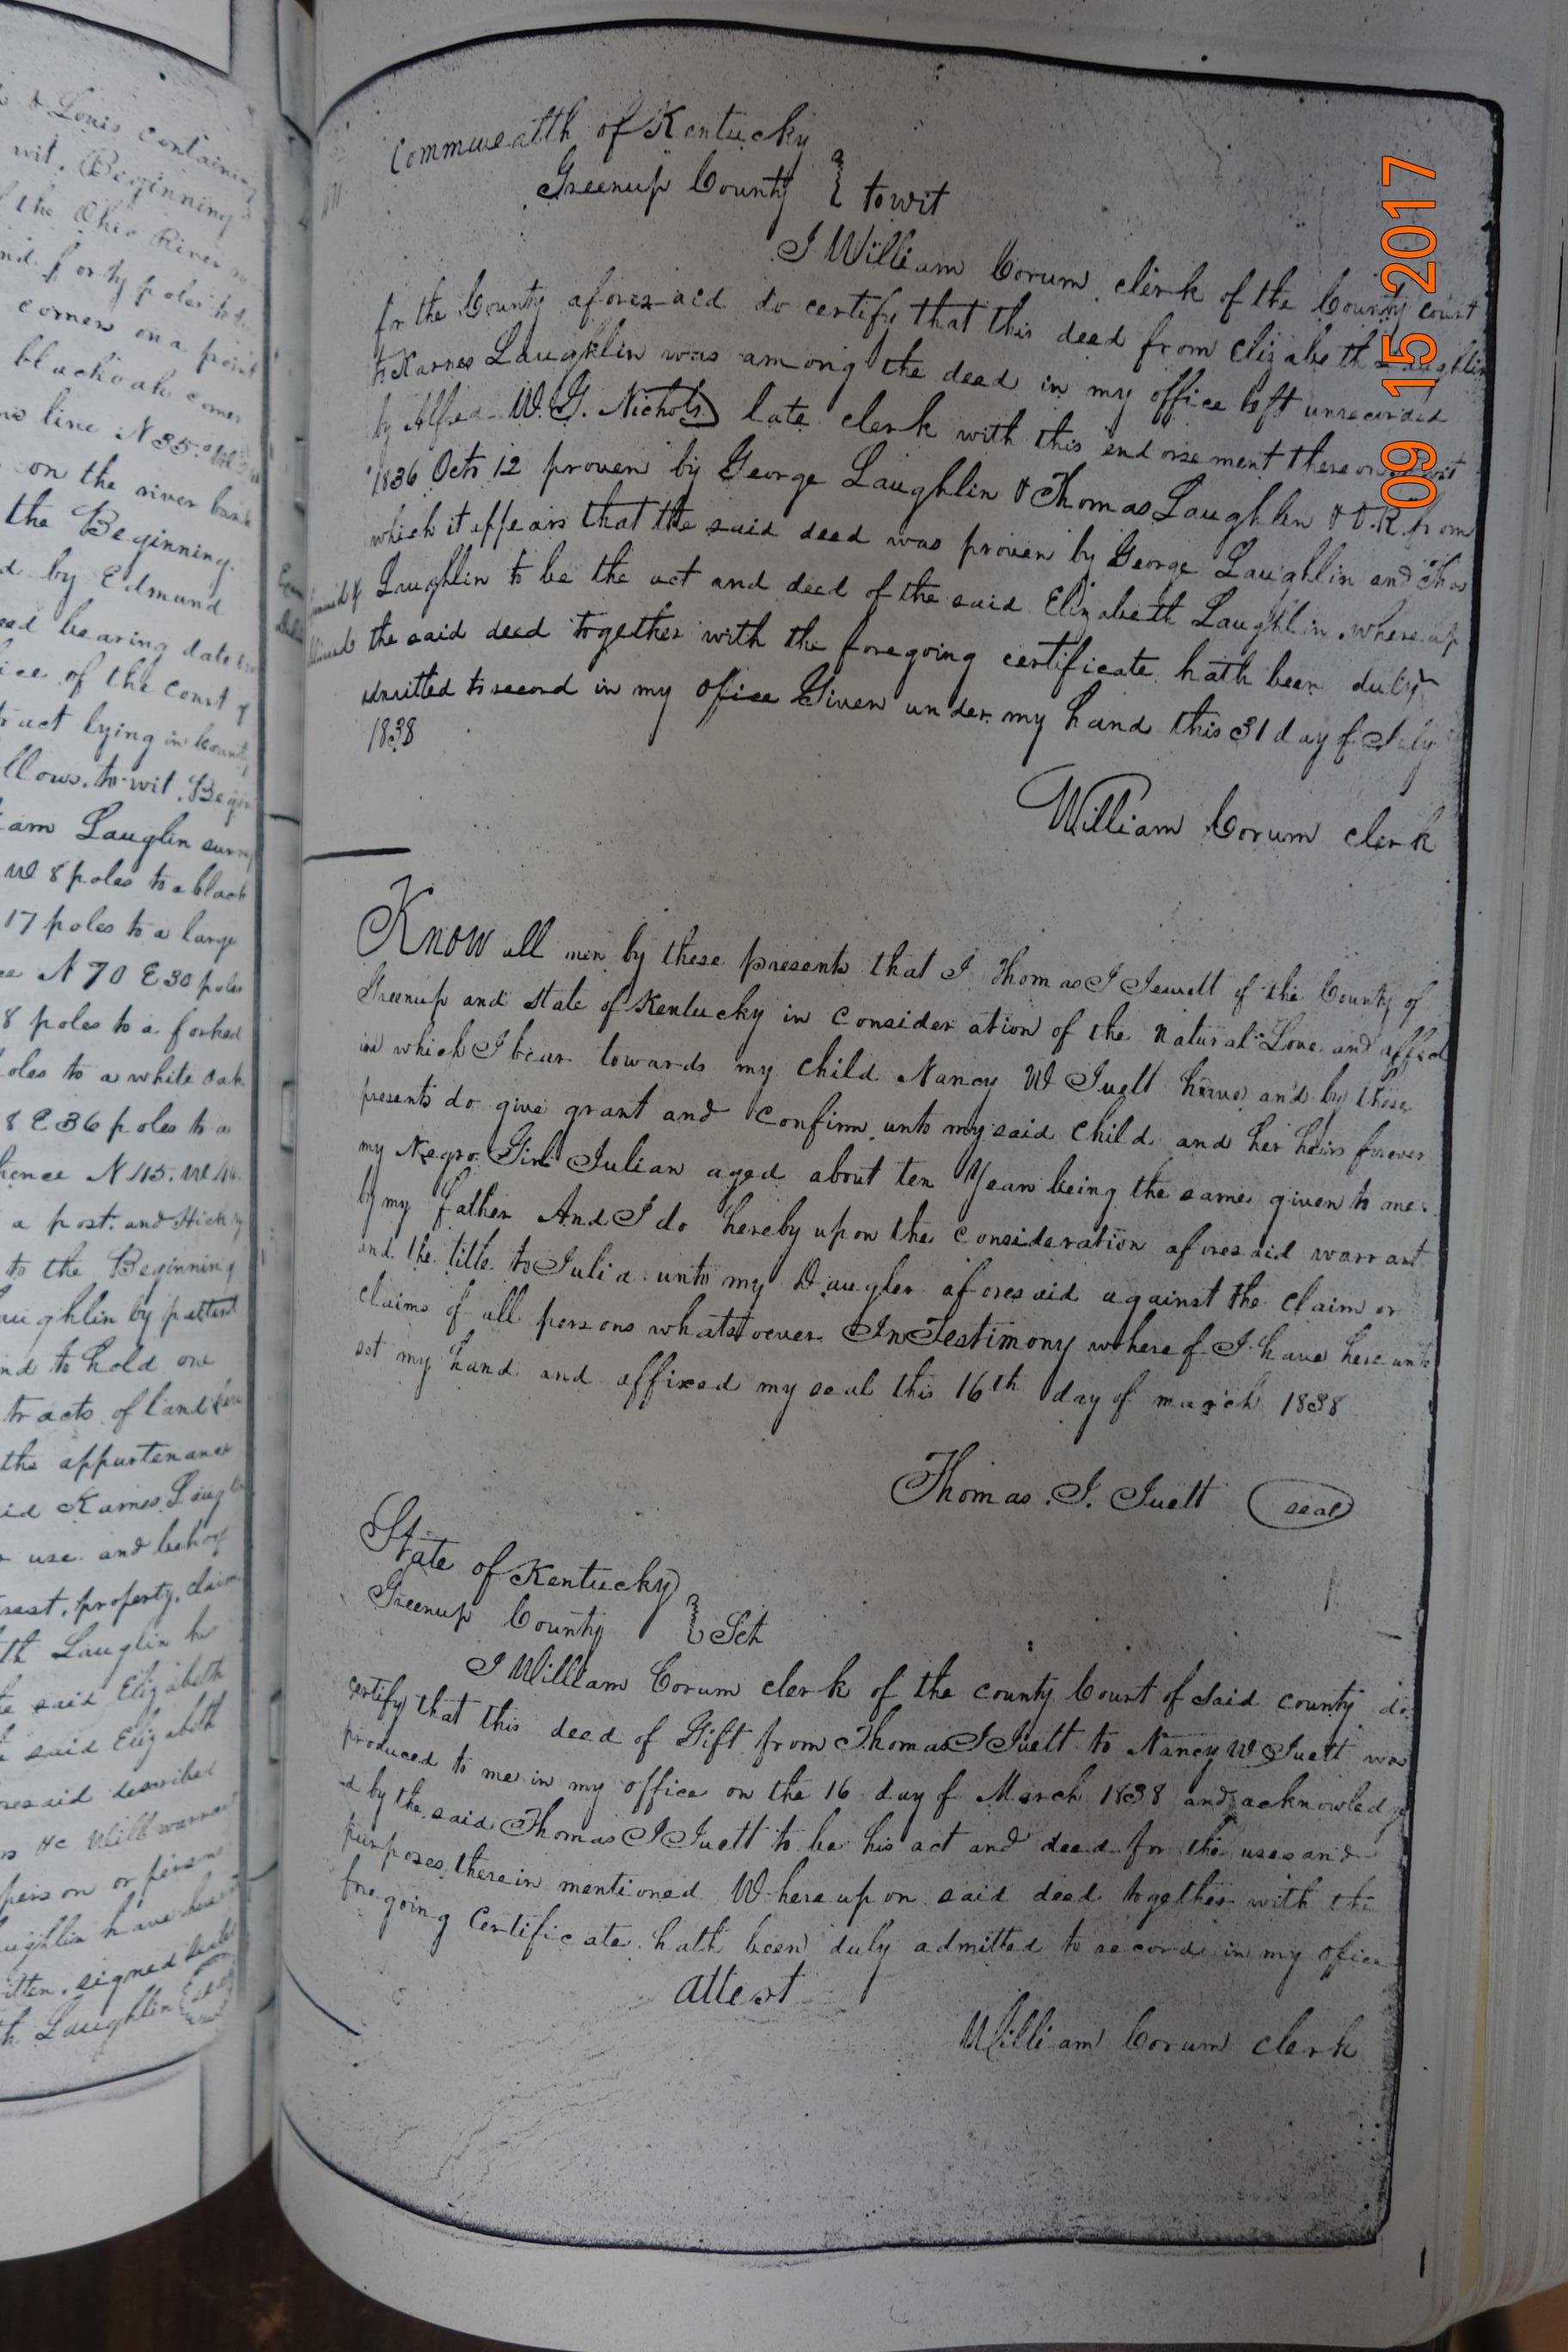 & Louis containing
wit. Beginning
the Ohio River
and forty poles to
corner on a point
blackoak corner
line N 35°
on the river bank
the Beginning.
d by Edmund
bearing date
ice of the court of
tract lying in County
llows, to-wit. Begin
am Lauglin
W 8 poles to a black
17 poles to a large
N 70 E 30 poles
8 poles to a forked
oles to a white oak
8 E 36 poles to a
hence N 45. W
a post. and Hick
to the Beginning
aughlin by pattent
nd to hold one
tracts of land
the appurtenance
id Karnes Laug
use and behoof
rest, property, claim
th Lauglin
said Elizabeth
said Elizabeth
oresaid described
&c Will warrant
person or person
aughlin have
itten. signed
h Laughlin
Commweatth of Kentucky
Greenup County } towit
I William Corum clerk of the County court
for the County aforesaid do certify that this deed from Elizabeth Laughlin
to Karnes Laughlin was among the deed in my office left unrecorded
by Alfred W. G. Nichols late clerk with this endorsement thereon towit
"1836 Octr 12 proven by George Laughlin & Thomas Laughlin & O.R. from
which it appears that the said deed was proven by George Laughlin and Thos
Laughlin to be the act and deed of the said Elizabeth Laughlin. whereup
the said deed together with the foregoing certificate hath been duly
admitted to record in my ofice Given under my hand this 31 day of July
1838
William Corum clerk
Know all men by these presents that I Thomas J Jewett of the County of
Greenup and state of Kentucky in consideration of the natural Love and affect
ion which I bear towards my child Nancy W Juett have and by these
presents do give grant and confirm unto my said child and her heirs forever
my Negro Girl Julian aged about ten Years being the same given to me
by my father And I do hereby upon the consideration aforesaid warrant
and the title to Julia unto my Daugler aforesaid against the claim or
claims of all persons whatsoever In Testimony whereof I have hereunto
set my hand and affixed my seal this 16th day of march 1838
Thomas. J. Juett (seal)
State of Kentucky
Greenup County } Sct
I William Corum clerk of the county Court of said county do
certify that this deed of Gift from Thomas J Juett to Nancy W Juett was
produced to me in my office on the 16 day of March 1838 and acknowledge
d by the said Thomas J Juett to be his act and deed for the uses and
purposes therein mentioned Whereupon said deed together with the
foregoing Certificate hath been duly admitted to record in my ofice
attest
William Corum clerk
09 15 2017